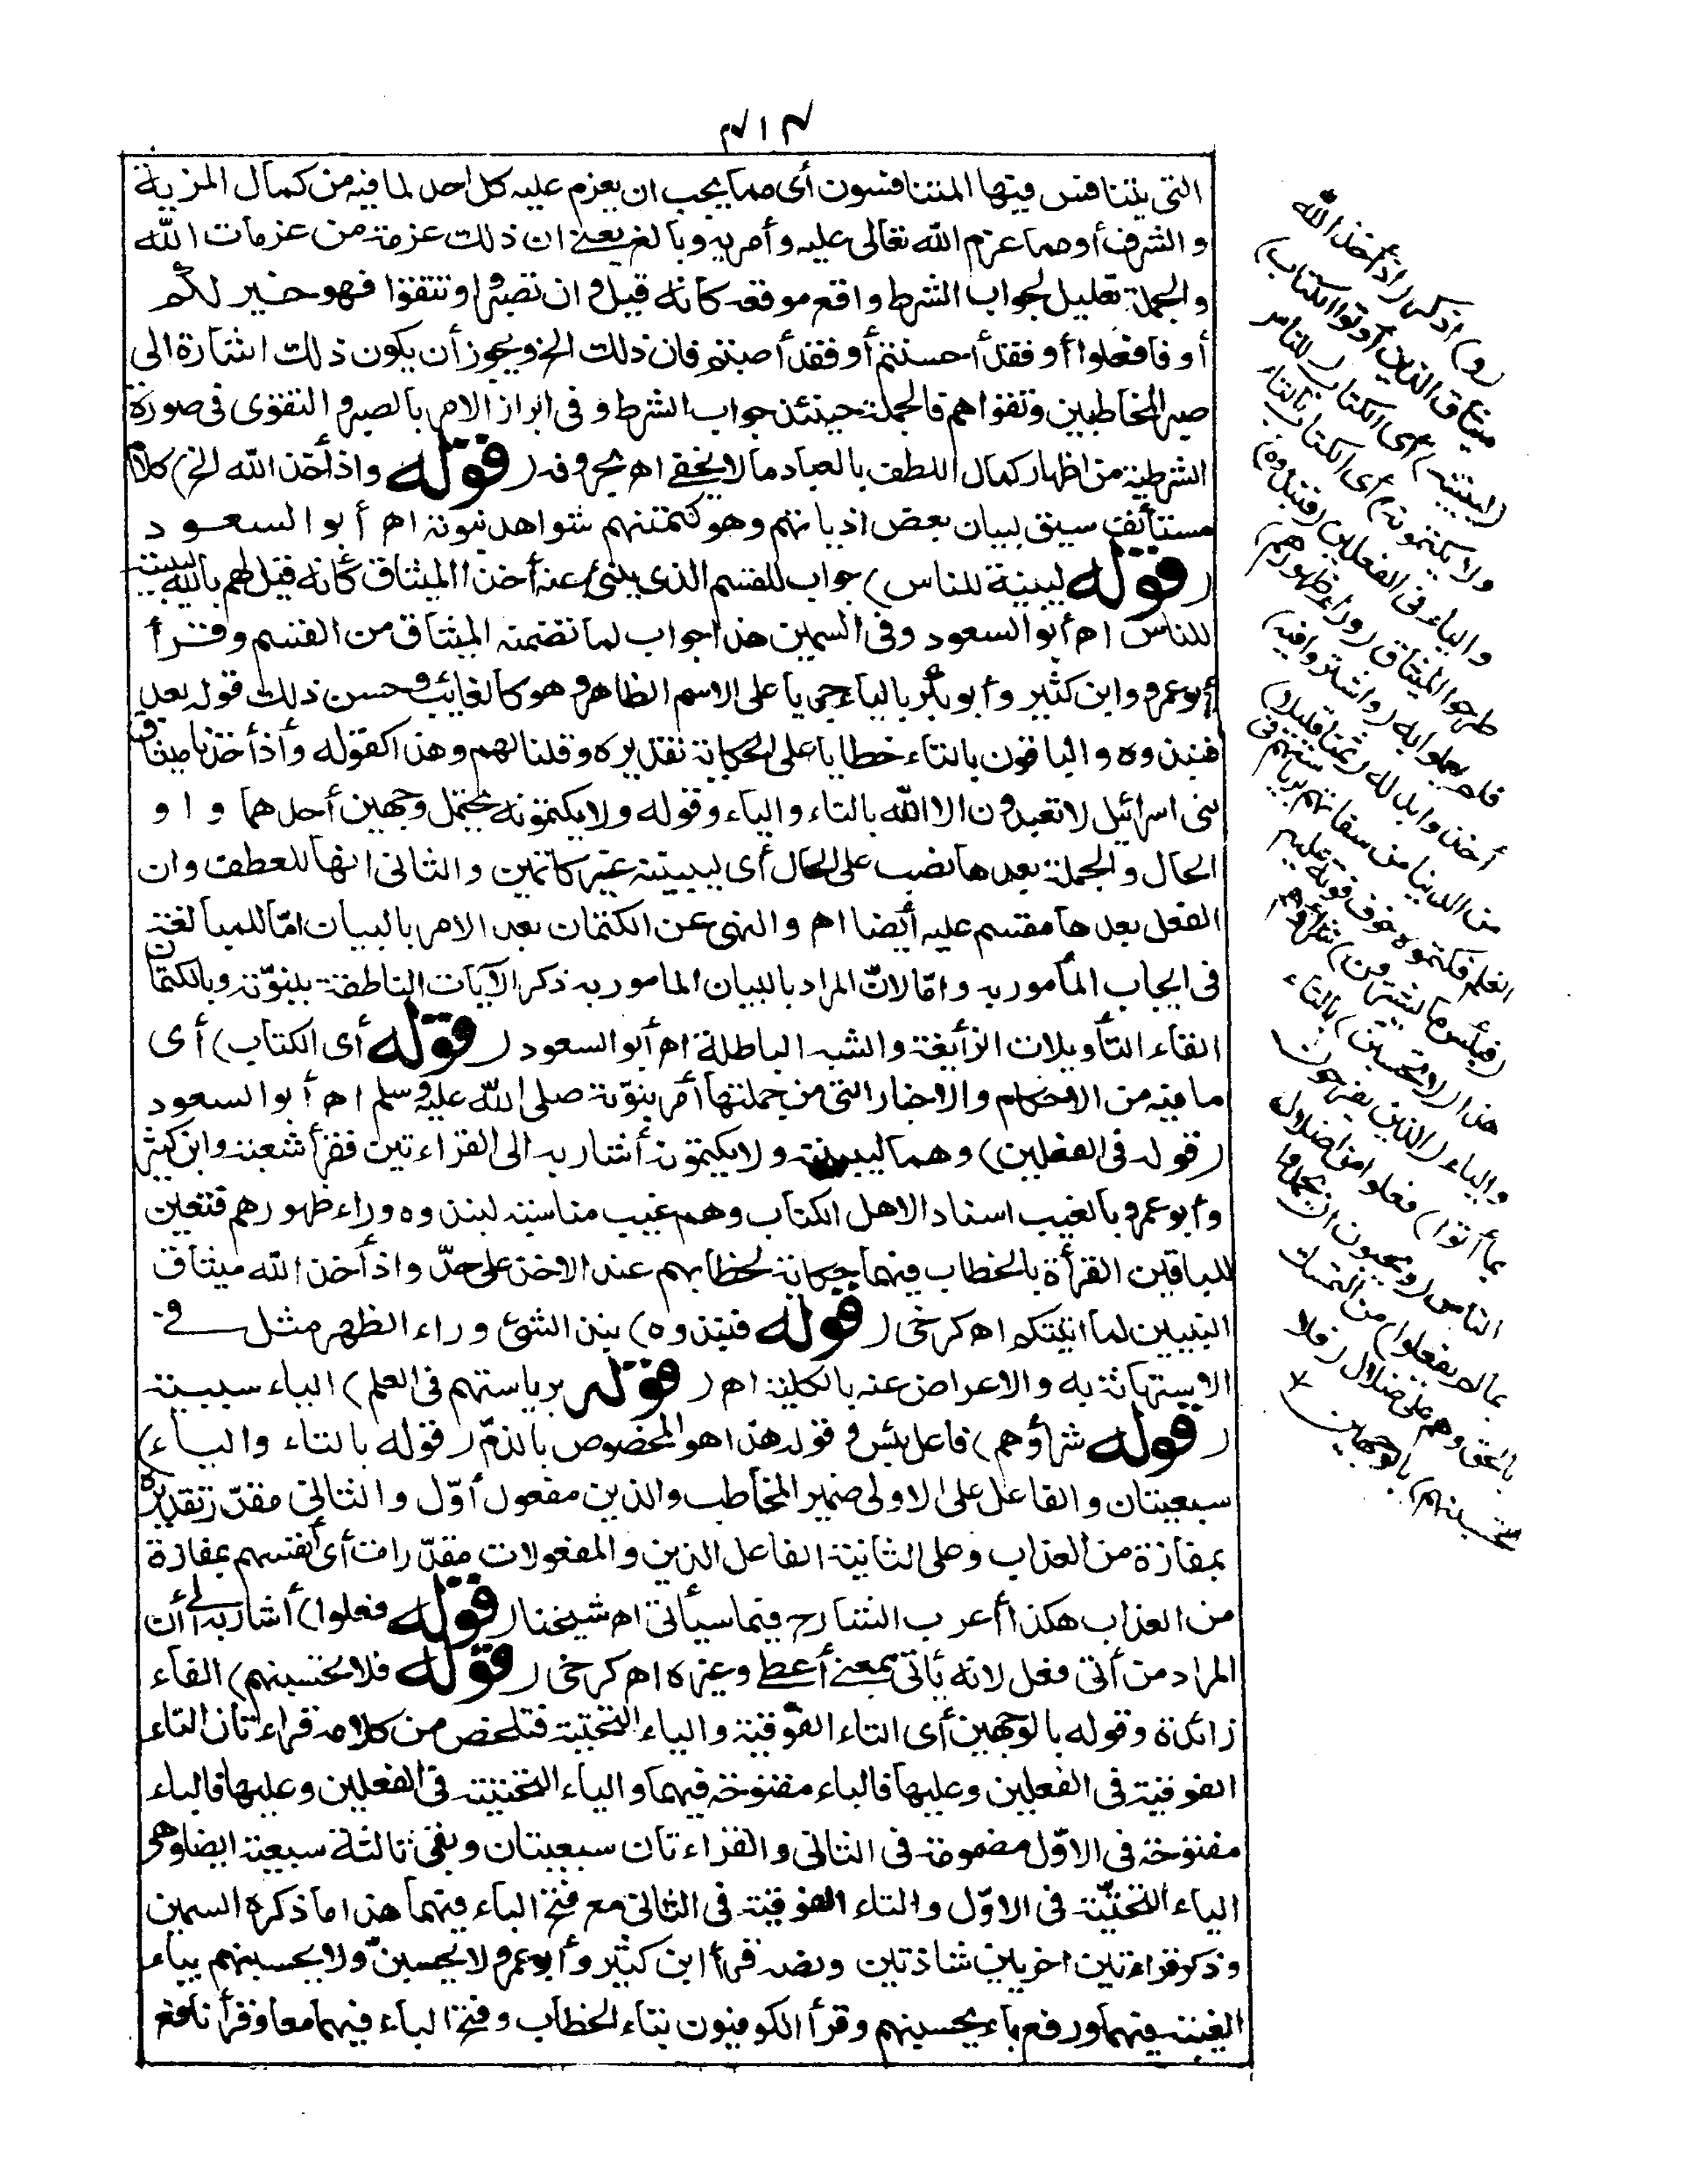 ٣١٣
التي يتنافس فيها المتنافسون أى مما يجب ان يعزم عليه كل احد لما فيه من كمال المزية
و الشرف أو مما عزم الله تعالى عليه و أمر به و بالغ يعنى ان ذلك عزمة من عزمات الله
والجملة تعليل لجواب الشرط واقع موقعه كأنه قيل و ان تصبروا و تتقوا فهو خير لكم
أو فافعلوا أو فقد أحسنتم أو فقد أصبتم فان ذلك الخ ويجوز أن يكون ذلك اشارة الى
صبر المخاطبين وتقواهم فالجملة حينئذ جواب الشرط و فى ابراز الامر بالصبر و التقوى فى صورة
الشرطية من اظهار كمال اللطف بالعباد ما لا يخفى اه بحروفه (قوله واذ أخذ الله الخ) كلام
مستأنف سيق لبيان بعض اذياتهم وهو كتمتهم شواهد نبوته اه أبو السعود
(قوله ليبينه للناس) جواب للقسم الذى ينبئ عنه أخذ الميثاق كأنه قيل لهم بالله ليبيننه
للناس اه أبو السعود وفى السمين هذا جواب لما تضمنه الميثاق من القسم وقرأ
أبو عمرو وابن كثير وأبو بكر بالياء جريا على الاسم الظاهر و هو كالغائب وحسن ذلك قوله بعد
فنبذوه والباقون بالتاء خطابا على الحكاية تقديره وقلنا لهم وهذا كقوله وأذ أخذنا ميثاق
بنى اسرائيل لا تعبدون الا الله بالتاء والياء وقوله ولا يكتمونه يحتمل وجهين أحدهما واو
الحال والجملة بعدها نصب على الحال أى ليبيننه غير كاتمين والثانى انها للعطف وان
الفعل بعدها مقسم عليه أيضا اه والنهى عن الكتمان بعد الامر بالبيان امّا للمبالغة
فى ايجاب المأمور به و امّا لانّ المراد بالبيان المامور به ذكر الآيات الناطقة بنبوّته وبالكتمان
القاء التأويلات الزائغة والشبه الباطلة اه أبو السعود (قوله أى الكتاب) أى
ما فيه من الاحكام والاخبار التى من جملتها أمر بنوّته صلى الله عليه وسلم اه أبو السعود
(قوله فى الفعلين) وهما ليبيننه ولا يكتمونه أشار به الى القراءتين فقرأ شعبة وابن كثير
وأبو عمرو بالغيب اسنادا لاهل الكتاب وهم غيب مناسبة لنبذوه وراء ظهورهم فتعين
للباقين القرأة بالخطاب فيهما حكاية لخطابهم عند الاخذ على حدّ واذ أخذ الله ميثاق
النبيين لما اتيتكم اه كرخى (قوله فنبذوه) نبذ الشئ وراء الظهر مثل فى
الاستهانة به والاعراض عنه بالكلية اه (قوله برياستهم فى العلم) الباء سببية
(قوله شراؤهم) فاعل بئس و قوله هذا هو المخصوص بالذمّ (قوله بالتاء والياء)
سبعيتان و الفاعل على الاولى ضمير المخاطب والذين مفعول أوّل والثانى مقدّر تقديره
بمفازة من العذاب وعلى الثانية الفاعل الذين والمفعولات مقدّرات أى أنفسهم بمفازة
من العذاب هكذا أعرب الشارح فيما سيأتى اه شيخنا (قوله فعلوا) أشار به الى أن
المراد من أتى فعل لانه يأتى بمعنى أعطى وغيره اه كرخى (قوله فلا تحسبنهم) الفاء
زائدة وقوله بالوجهين أى التاء الفوقية والياء التحتية فتلخص من كلامه قراءتان التاء
الفوقية فى الفعلين وعليها فالباء مفتوحة فيهما والياء التحتية فى الفعلين وعليها فالباء
مفتوحة فى الاوّل مضمومة فى الثانى والقراءتان سبعيتان وبقى ثالثة سبعية ايضا وهى
الياء التحتيّة فى الاوّل والتاء الفوقية فى الثانى مع فتح الباء فيهما هذا ما ذكره السمين
وذكر قراءتين اخريين شاذتين ونصه قرأ ابن كثير وأبو عمرو لا يحسبنّ ولا يحسبنهم بياء
الغيبة فيهما ورفع باء يحسبنهم وقرأ الكوفيون بتاء الخطاب وفتح الباء فيهما معا وقرأ نافع
(و) اذكر (اذ أخذ الله
ميثاق الذين أوتوا الكتاب)
(ليبيننه) أى الكتاب (للناس
ولا يكتمونه) أى الكتاب بالتاء
والياء فى الفعلين (فنبذوه)
طرحوا الميثاق (وراء ظهورهم)
فلم يعملوا به (واشتروا به)
أخذوا بدله (ثمنا قليلا)
من الدنيا من سفلتهم برياستهم فى
العلم فكتموه خوف فوته عليهم
(فبئس ما يشترون) شراؤهم
هذا (لا تحسبن) بالتاء
والياء (الذين يفرحون
بما أتوا) فعلوا من اضلال
الناس (ويحبون ان يحمدوا
بما لم يفعلوا) من التمسك
بالحق وهم على ضلال (فلا
تحسبنهم) بالوجهين